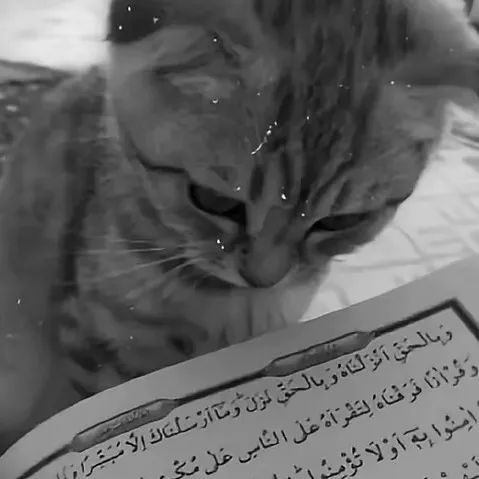 وَبِالْحَقِّ اَنْزَلْنَاهُ وَبِالْحَقِّ نَزَلَ وَمَٓا اَرْسَلْنَاكَ اِلَّا مُبَشِّرًا
وَقُرْاٰنًا فَرَقْنَاهُ لِتَقْرَاَهُ عَلَى النَّاسِ عَلٰى
اٰمِنُوا بِه۪ٓ اَوْ لَا تُؤْمِنُوا